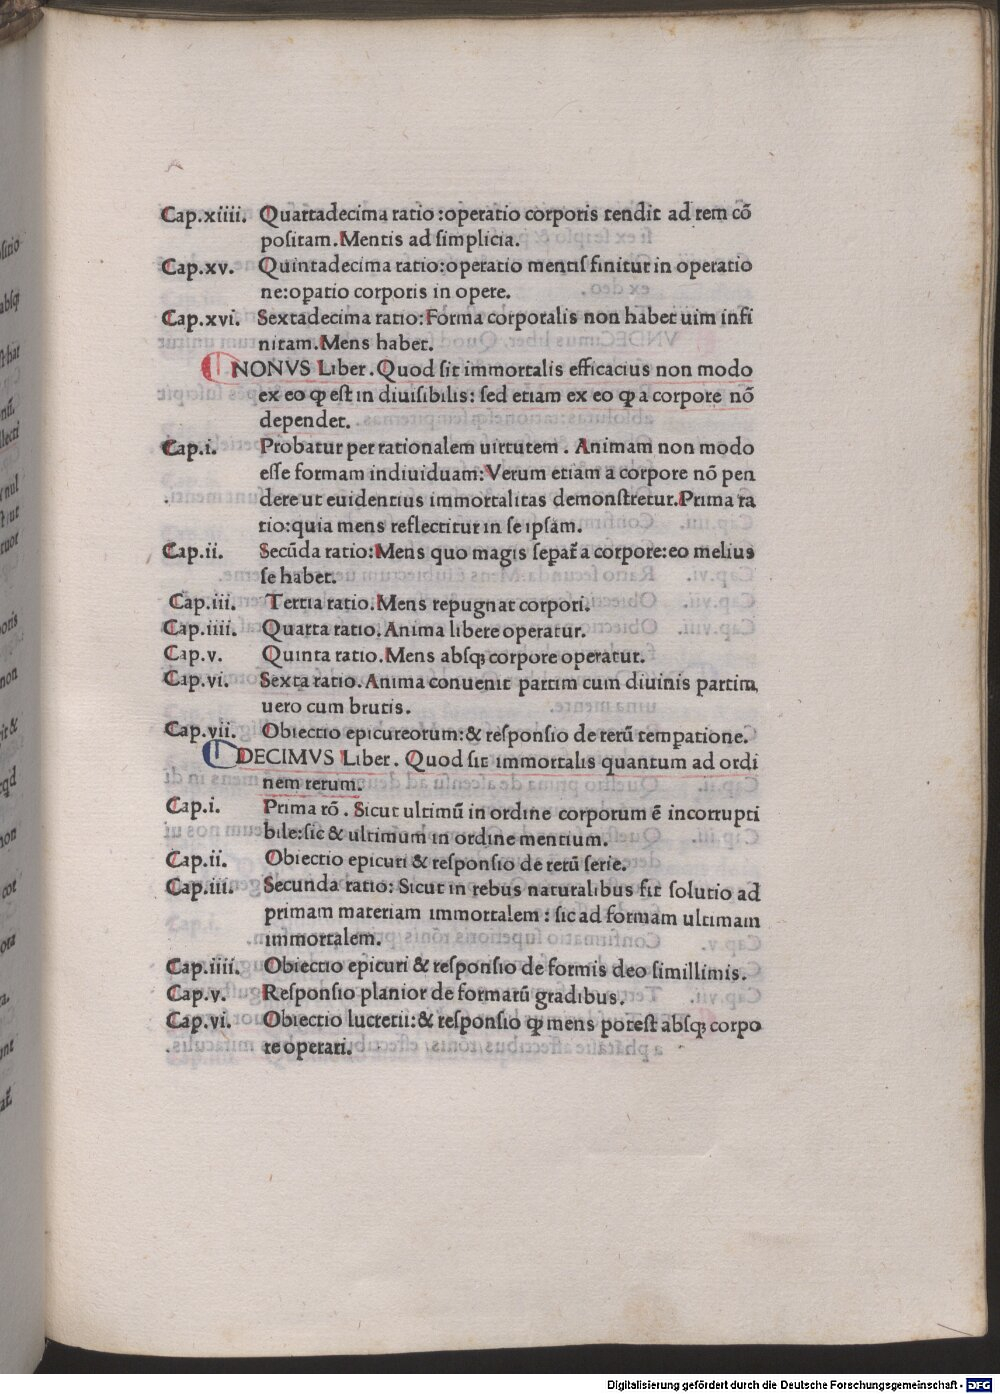 Cap.xiiii. Quartadecima ratio:operatio corporis tendit ad rem cō
positam.Mentis ad simplicia.
Cap.xv. Quintadecima ratio:operatio mentiſ finitur in operatio
ne:opatio corporis in opere.
Cap.xvi. Sextadecima ratio:Forma corporalis non habet uim infi
nitam.Mens habet.
NONVS Liber. Quod ſit immortalis efficacius non modo
ex eo ꝙ eſt in diuiſibilis: ſed etiam ex eo ꝙ a corpore nō
dependet.
Cap.i. Probatur per rationalem uirtutem. Animam non modo
eſſe formam indiuiduam:Verum etiam a corpore nō pen
dere ut euidentius immortalitas demonſtretur.Prima ra
tio:quia mens reflectitur in ſe ipſam.
Cap.ii. Secūda ratio:Mens quo magis ſepat̄ a corpore:eo melius
ſe habet.
Cap.iii. Tertia ratio.Mens repugnat corpori.
Cap.iiii. Quarta ratio.Anima libere operatur.
Cap.v. Quinta ratio.Mens abſqꝫ corpore operatur.
Cap.vi. Sexta ratio.Anima conuenit partim cum diuinis partim
uero cum brutis.
Cap.vii. Obiectio epicureorum:& reſponſio de rerū temꝑatione.
DECIMVS Liber. Quod ſit immortalis quantum ad ordi
nem rerum.
Cap.i. Prima rō. Sicut ultimū in ordine corporum ē incorrupti
bile:ſic & ultimum in ordine mentium.
Cap.ii. Obiectio epicuri & reſponſio de rerū ſerie.
Cap.iii. Secunda ratio: Sicut in rebus naturalibus fit ſolutio ad
primam materiam immortalem: ſic ad formam ultimam
immortalem.
Cap.iiii. Obiectio epicuri & reſponſio de formis deo ſimillimis.
Cap.v. Reſponſio planior de formarū gradibus.
Cap.vi. Obiectio lucretii:& reſponſio ꝙ mens poteſt abſqꝫ corpo
re operari.
Digitalisierung gefördert durch die Deutsche Forschungsgemeinschaft - DFG